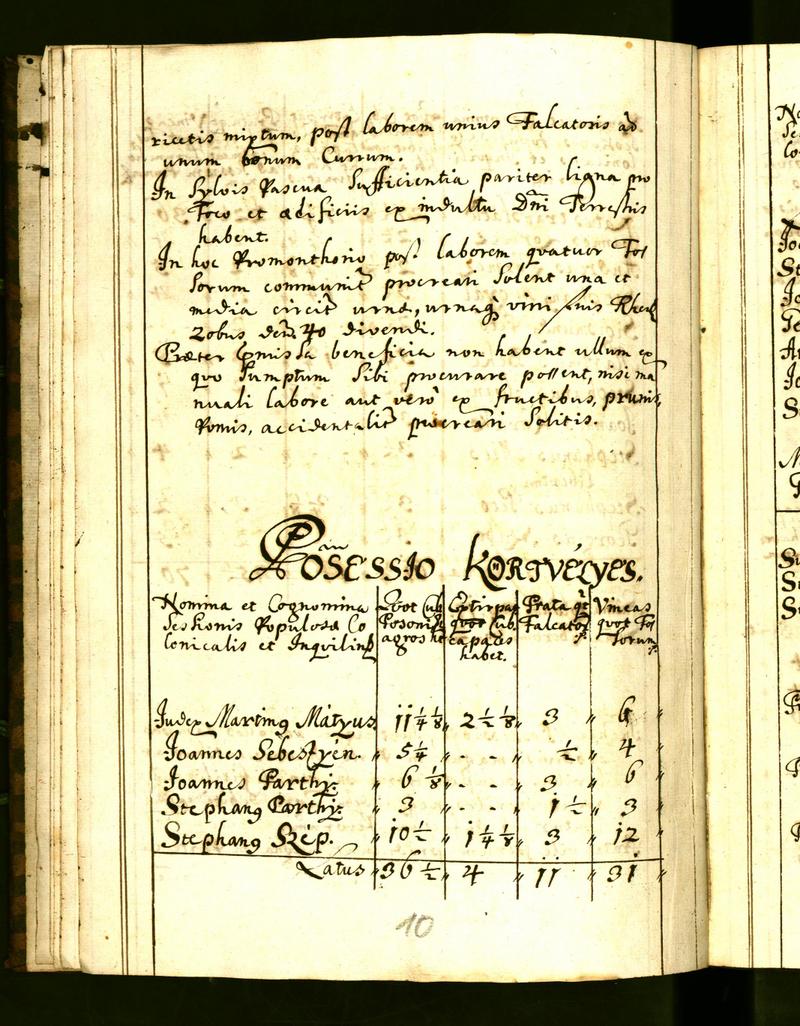 ricetis mixtum, post laborem unius Falcatoris ad
unum bonum Currum.
In Sylvis Pascua Sufficientia pariter ligna pro
Foco et ædificiis ex indultu Dni Terrestris
habent.
In hoc Promonthorio post laborem quatuor Fos
sorum communit procreari Solent una et
media circit urnæ, urnaq vini suis
Zobus den 40 divendi.
Præter præmissa beneficia non habent ullum ex
quo Sumptum Sibi procurare possent, nisi ma
nuali labore aut vero ex fructibus, prunis,
Pomis, accidentalit procreari Solitis.
POSESSIO KÖRTVÉLYES.
Nomina et Cognomina Quot sub Extirpa Prata qt Vineas
Sessionis Populosæ Co Posoni quot sub Falcator quot Fos
lonicalis et Inquilin agros ht capaces sorum
habet.
Judex Marting Mátyus 11 1/4 1/8 2 1/2 1/8 3 " 6 "
Joannes Sebestyén. " 5 1/4 " - - " 1/2 " 4 "
Joannes Parthy: " 6 1/8 " - - " 3 " 6 "
Stephang Parthy: " 3 " - - " 1 1/2 " 3 "
Stephang Szép. " 10 1/2 " 1 1/4 1/8 " 3 " 12 "
Latus " 36 1/2 " 4 " 11 " 31 "
10